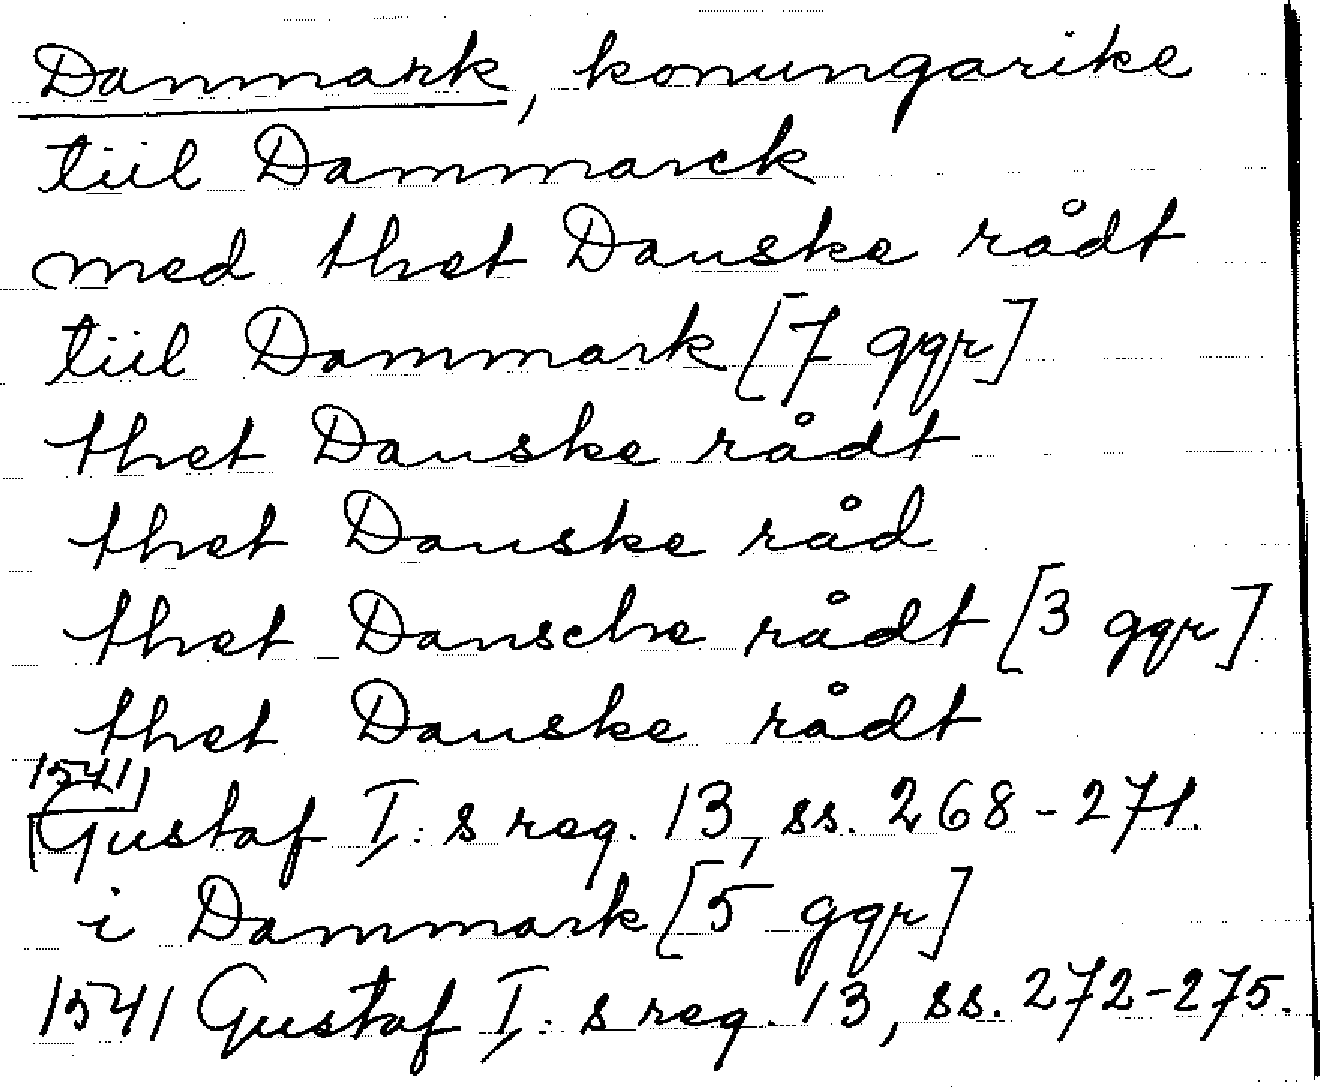 Danmark, konungarike
tiil Dammarck
med thet Danske rådt
tiil Dammark [7 ggr]
thet Danske rådt
thet Danske råd
thet Dansche rådt [3 ggr]
thet Danske rådt
1541
Gustaf I: s reg. 13, ss. 268-271.
i Dammark [5 ggr]
1541 Gustaf I: s reg. 13, ss. 272-275.